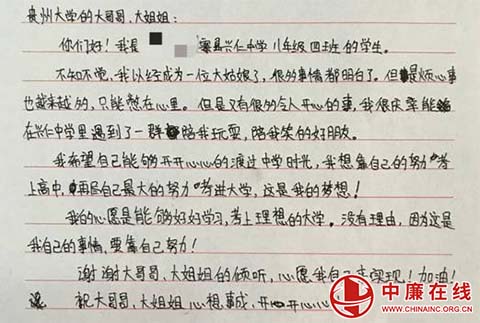 贵州大学的大哥哥、大姐姐：
你们好！我是 寨县兴仁中学八年级四班的学生。
不知不觉，我以经成为一位大姑娘了，很多事情都明白了。但是烦心事
也越来越多，只能憋在心里。但是又有很多令人开心的事，我很庆幸能
在兴仁中学里遇到了一群陪我玩耍，陪我笑的好朋友。
我希望自己能够开开心心的渡过中学时光，我想靠自己的努力考
上高中，再用自己最大的努力考进大学，这是我的梦想！
我的心愿是能够好好学习，考上理想的大学。没有理由，因为这是
我自己的事情，要靠自己努力！
谢谢大哥哥、大姐姐的倾听，心愿我自己来实现！加油！
祝大哥哥、大姐姐心想事成，开开心心
中廉在线
WWW.CHINAINC.ORG.CN